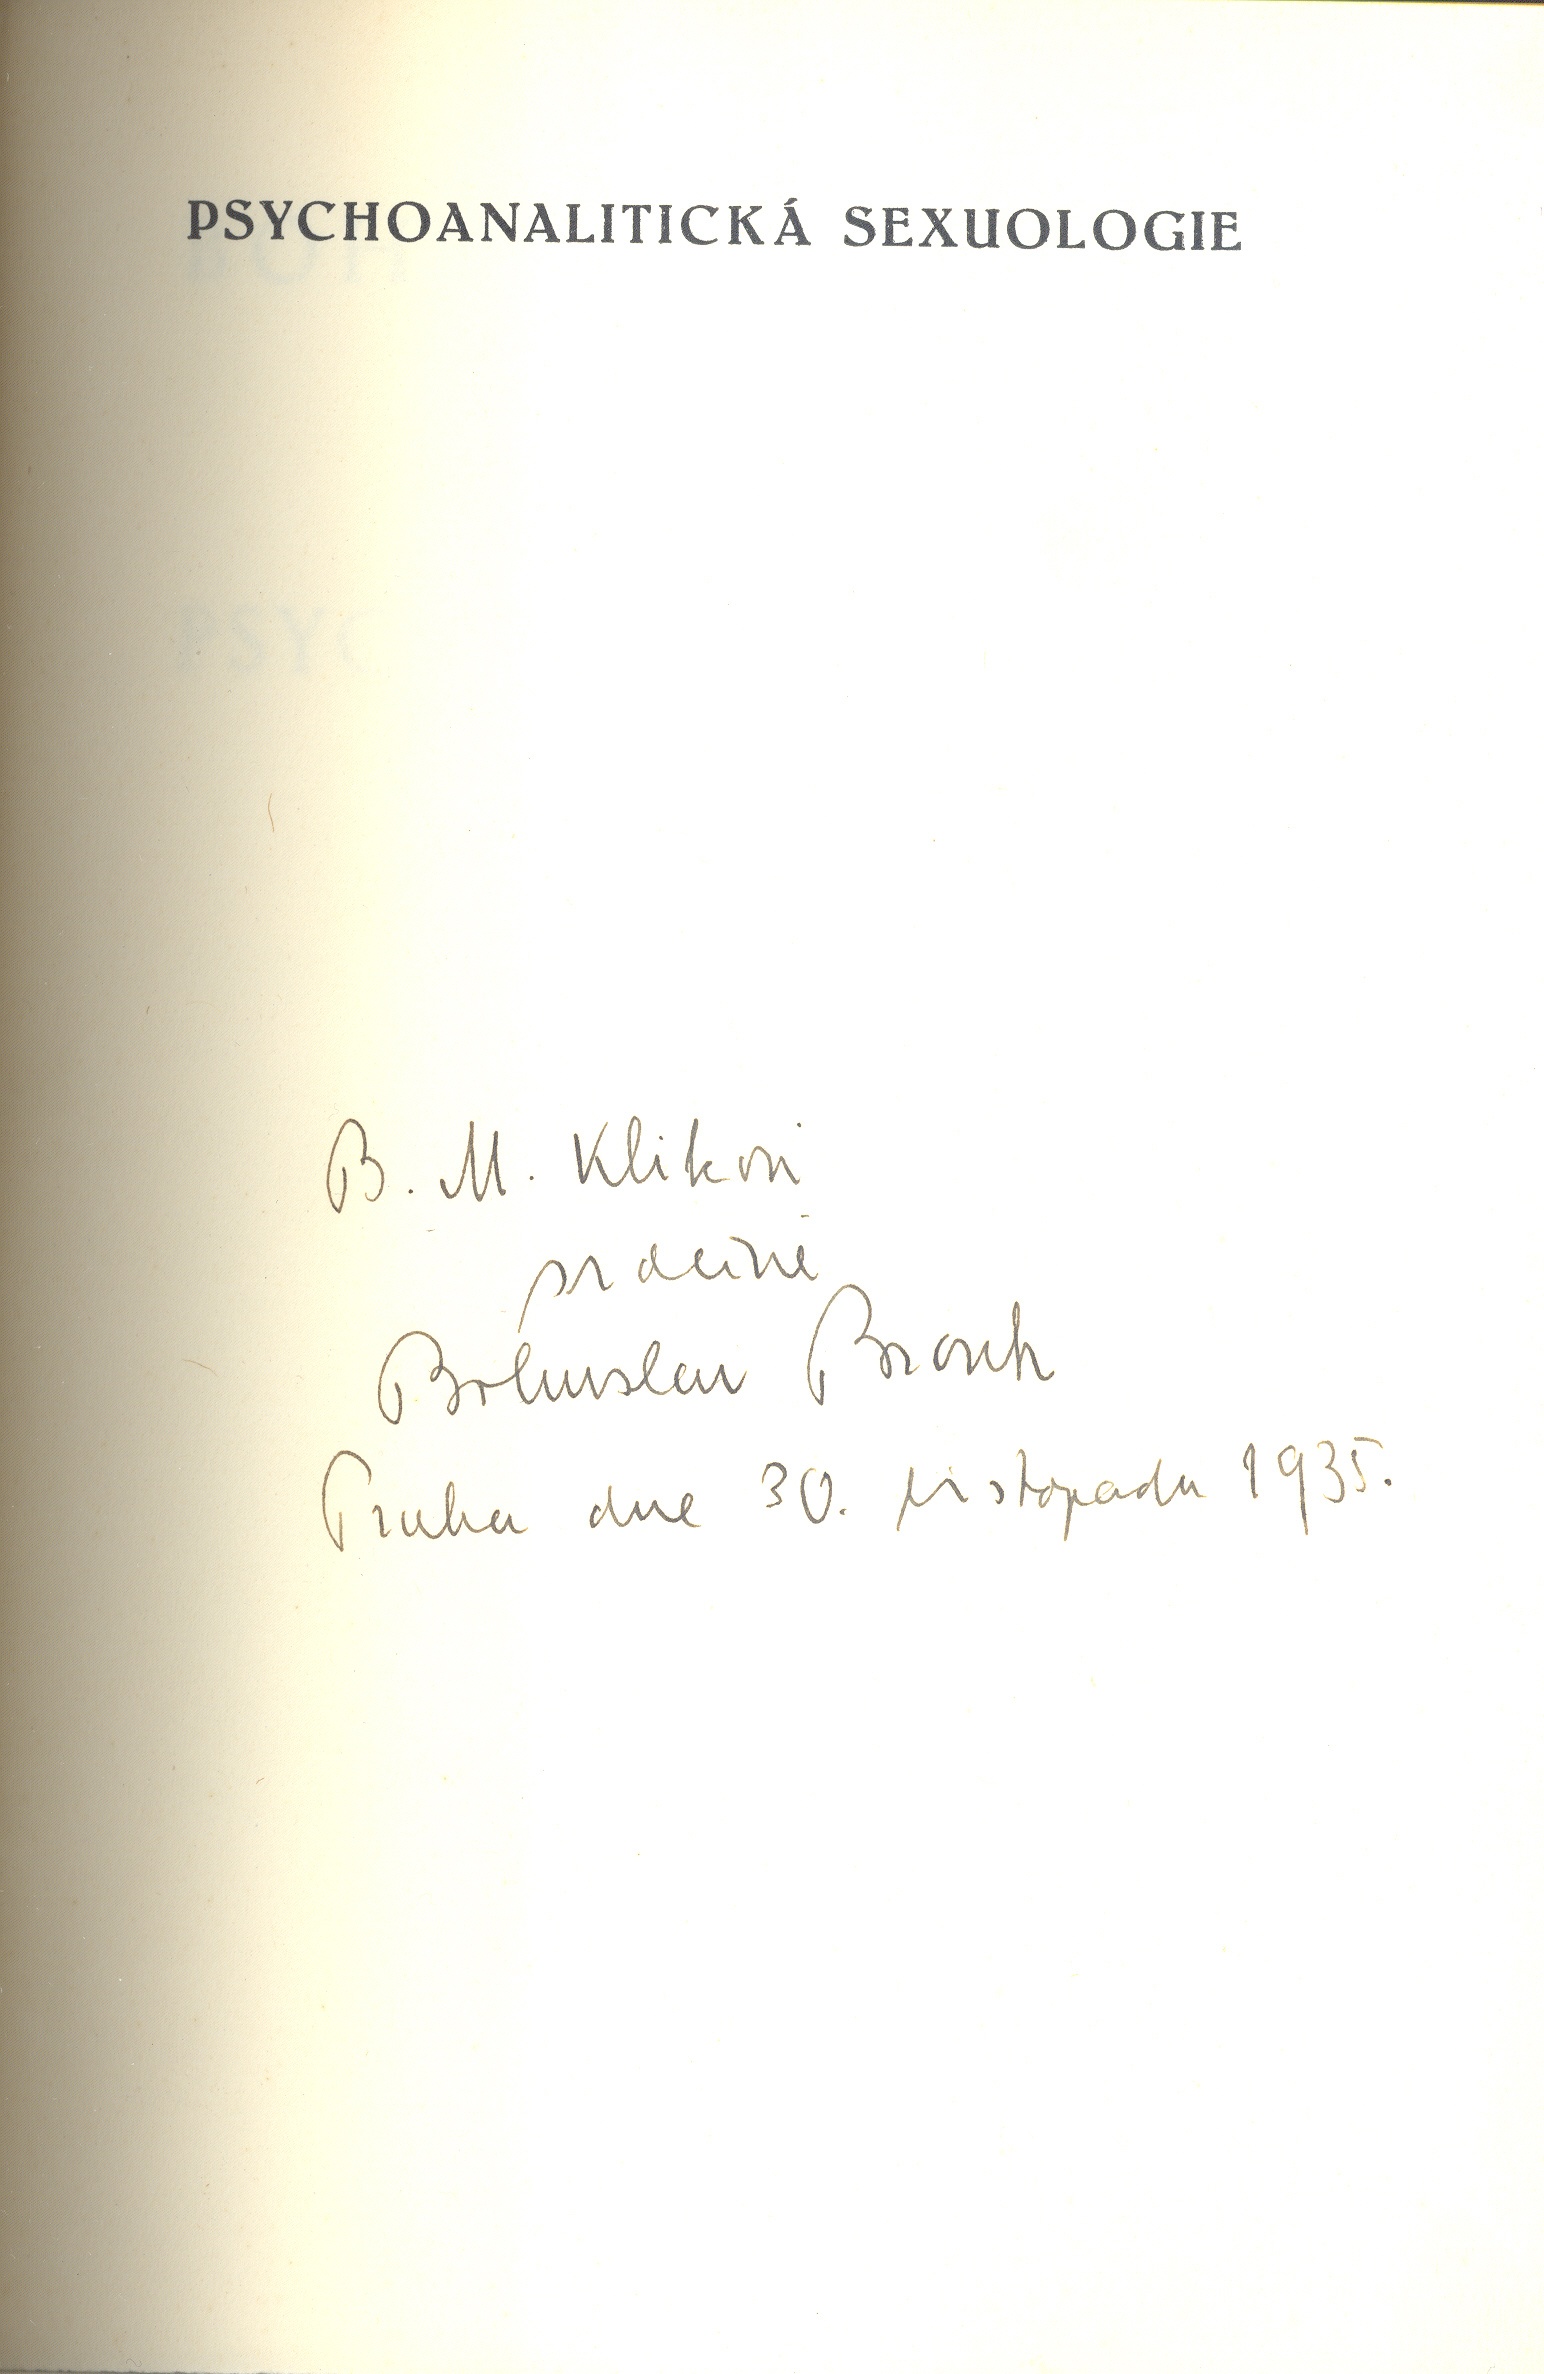 PSYCHOANALITICKÁ SEXUOLOGIE
PSYC
B. M. Klikovi
srdečně
Bohuslav Brouk
Praha dne 30. listopadu 1935.